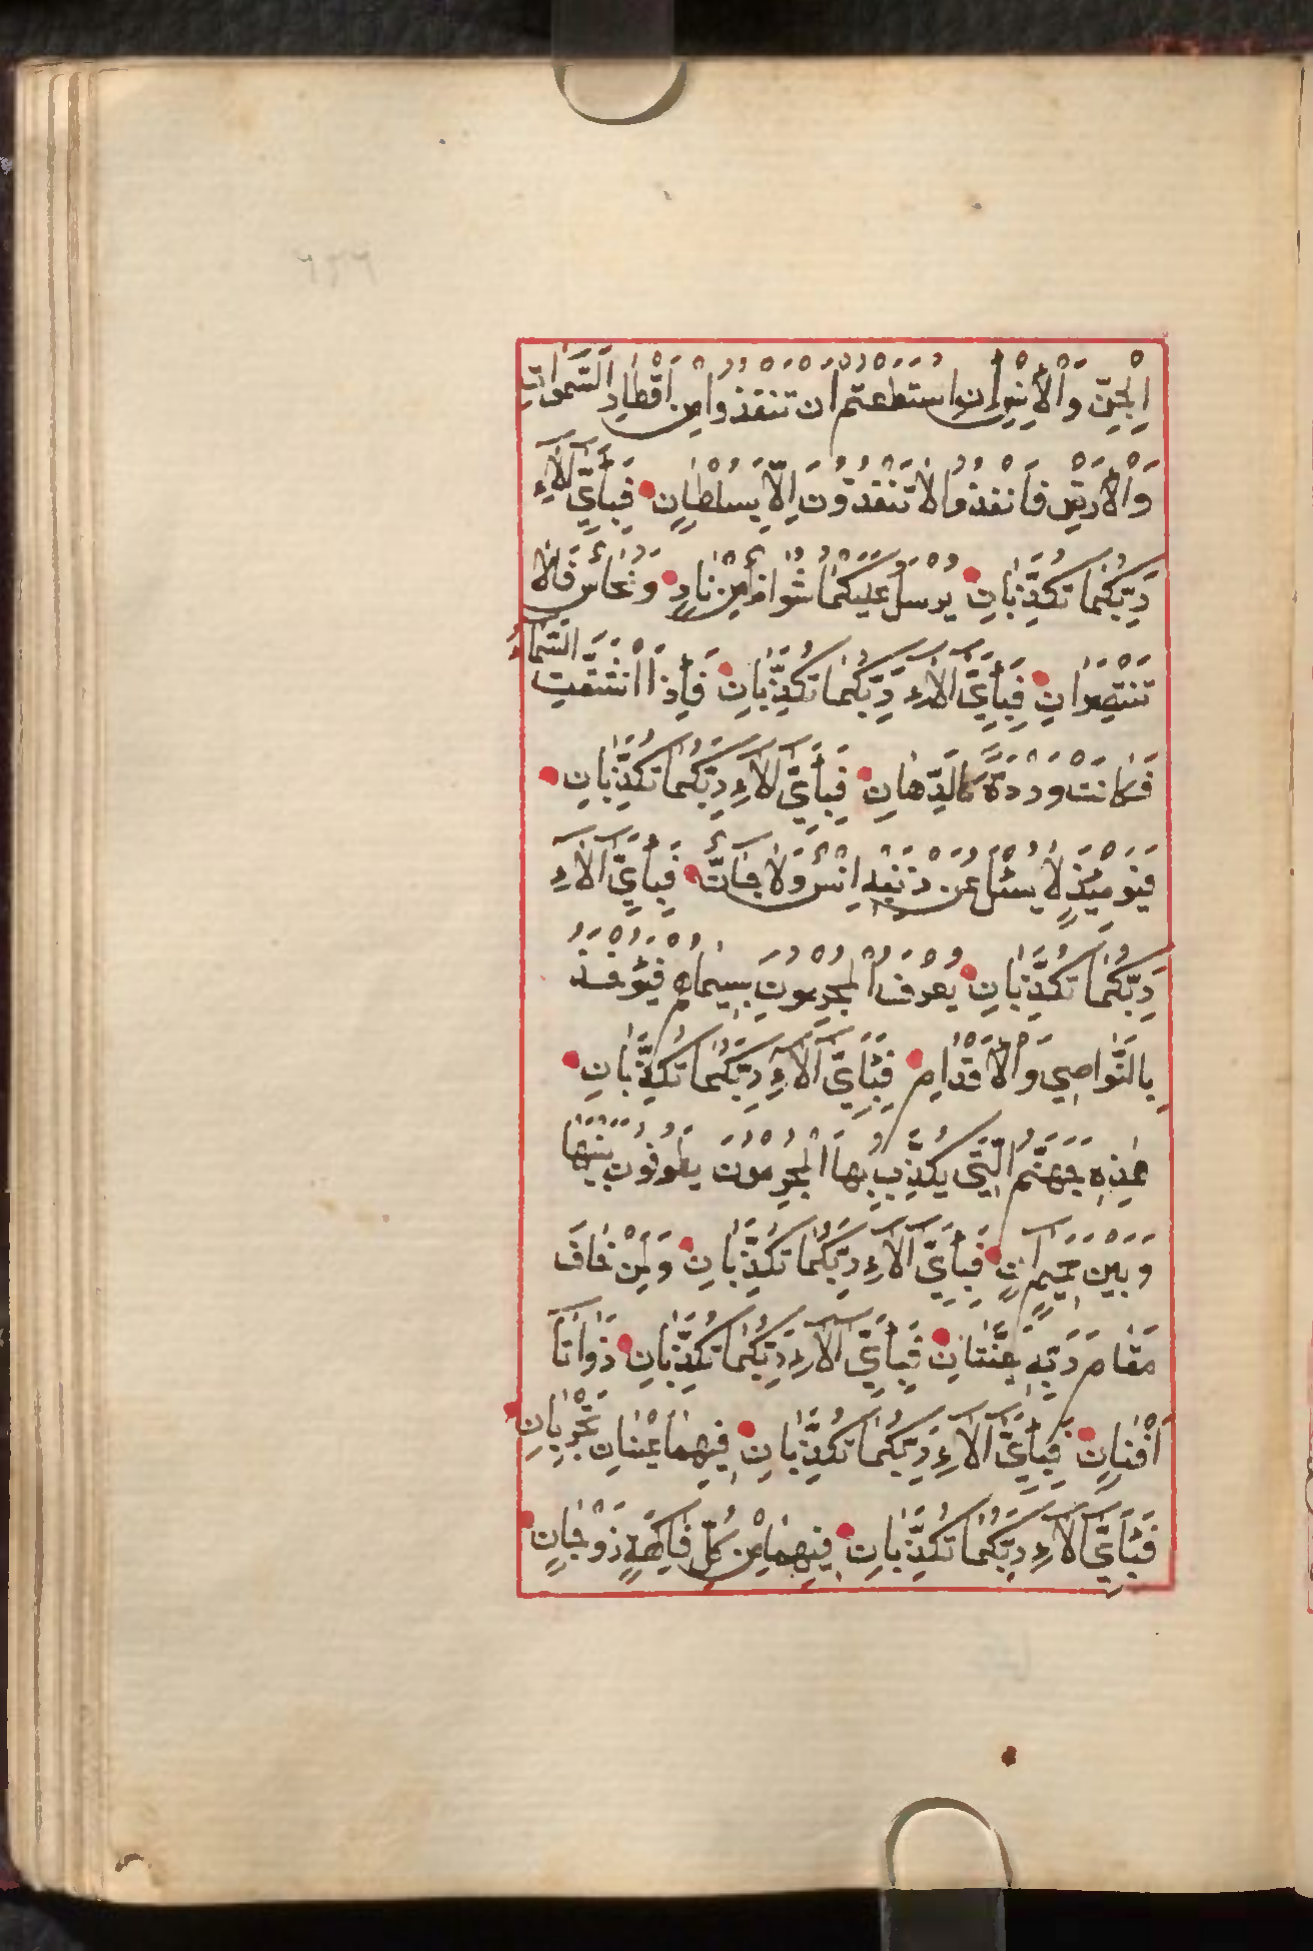 الْجِنِّ وَالْأِنْسِ اِنِ اسْتَطَعْتُمْ اَنْ تَنْفُذُوا مِنْ اَقْطَارِ السَّمٰوَاتِ
وَالْأَرْضِ فَانْفُذُوا لَا تَنْفُذُونَ اِلَّا بِسُلْطَانٍ فَبِأَيِّ اٰلَآءِ
رَبِّكُمَا تُكَذِّبَانِ يُرْسَلُ عَلَيْكُمَا شُوَاظٌ مِنْ نَارٍ وَنُحَاسٌ فَلَا
تَنْتَصِرَانِ فَبِأَيِّ اٰلَآءِ رَبِّكُمَا تُكَذِّبَانِ فَاِذَا انْشَقَّتِ السَّمَاءُ
فَكَانَتْ وَرْدَةً كَالدِّهَانِ فَبِأَيِّ اٰلَآءِ رَبِّكُمَا تُكَذِّبَانِ
فَيَوْمَئِذٍ لَا يُسْئَلُ عَنْ ذَنْبِهِ اِنْسٌ وَلَا جَانٌّ فَبِأَيِّ اٰلَآءِ
رَبِّكُمَا تُكَذِّبَانِ يُعْرَفُ الْمُجْرِمُونَ بِسِيمَاهُمْ فَيُؤْخَذُ
بِالنَّوَاصِي وَالْأَقْدَامِ فَبِأَيِّ اٰلَآءِ رَبِّكُمَا تُكَذِّبَانِ
هٰذِهِ جَهَنَّمُ الَّتِي يُكَذِّبُ بِهَا الْمُجْرِمُونَ يَطُوفُونَ بَيْنَهَا
وَبَيْنَ حَمِيمٍ اٰنٍ فَبِأَيِّ اٰلَآءِ رَبِّكُمَا تُكَذِّبَانِ وَلِمَنْ خَافَ
مَقَامَ رَبِّهِ جَنَّتَانِ فَبِأَيِّ اٰلَآءِ رَبِّكُمَا تُكَذِّبَانِ ذَوَاتَا
اَفْنَانٍ فَبِأَيِّ اٰلَآءِ رَبِّكُمَا تُكَذِّبَانِ فِيهِمَا عَيْنَانِ تَجْرِيَانِ
فَبِأَيِّ اٰلَآءِ رَبِّكُمَا تُكَذِّبَانِ فِيهِمَا مِنْ كُلِّ فَاكِهَةٍ زَوْجَانِ